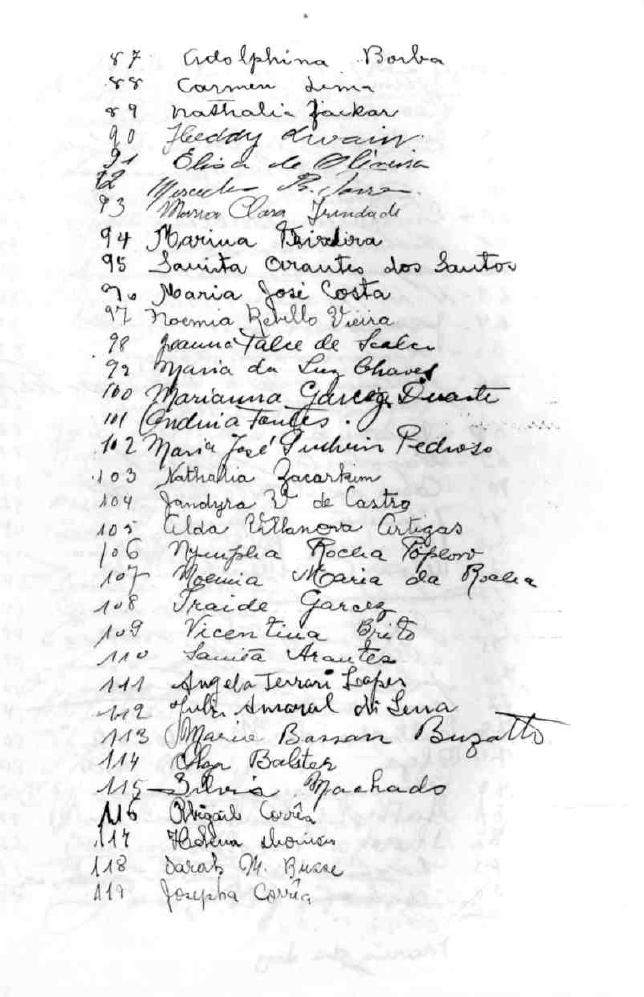 87 Adolphina Borba
88 Carmen Lima
89 Nathalia
90 Heddy
91 Elisa de Oliveira
92 Mercedes
93 Maria Clara Trindade
94 Marina Teixeira
95 Sanita Arantes dos Santos
96 Maria José Costa
97 Noemia Rebello Vieira
98 Joanna Falce de Scalco
99 Maria da Luz Chaves
100 Marianna Garcez Duarte
101 Fontes
102 Maria José Pedroso
103 Nathalia Zacarkim
104 Jandyra de Castro
105 Alda Villanova Artigas
106 Nympha Rocha
107 Noemia Maria da Rocha
108 Iraide Garcez
109 Vicentina Brito
110 Sanita Arantes
111 Angela Ferrari Lopes
112 Amaral
113 Maria Bassan Buzatto
114 Olga Balster
115 Silvia Machado
116 Abigail Corrêa
117 Helena
118 Sarah M. Busse
119 Josepha Corrêa